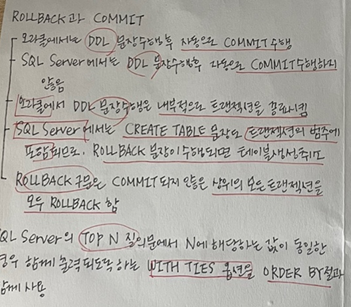 ROLLBACK과 COMMIT
오라클에서는 DDL 문장수행후 자동으로 COMMIT수행
SQL Server에서는 DDL 문장수행후 자동으로 COMMIT수행하지
않음
오라클에서 DDL 문장수행은 내부적으로 트랜잭션을 종료시킴
SQL Server에서는 CREATE TABLE 문장도 트랜잭션의 범주에
포함되므로, ROLLBACK 문장이 수행되면 테이블생성취소
ROLLBACK 구문은 COMMIT되지 않은 상위의 모든 트랜잭션을
모두 ROLLBACK 함
QL Server의 TOP N 질의문에서 N에 해당하는 값이 동일한
경우 함께 출력되도록 하는 WITH TIES 옵션을 ORDER BY절과
함께 사용